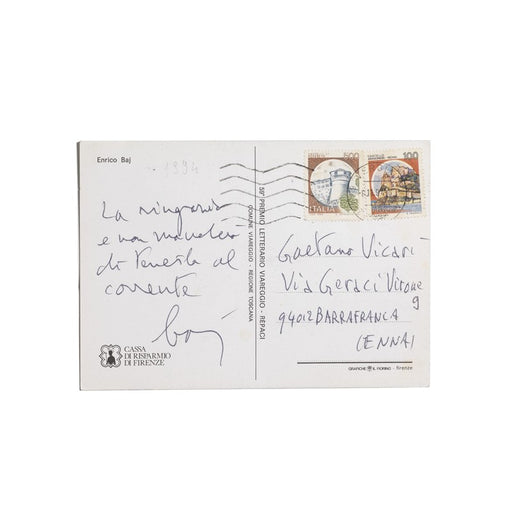 Enrico Baj
1994
La ringrazio
e non mancherò
di tenerla al
corrente
baj
CASSA
DI RISPARMIO
DI FIRENZE
59° PREMIO LETTERARIO VIAREGGIO - REPACI
COMUNE VIAREGGIO - REGIONE TOSCANA
500
ITALIA
100
Gaetano Vicari
Via Geraci Virone
9
94012 BARRAFRANCA
(ENNA)
GRAFICHE IL FIORINO - firenze